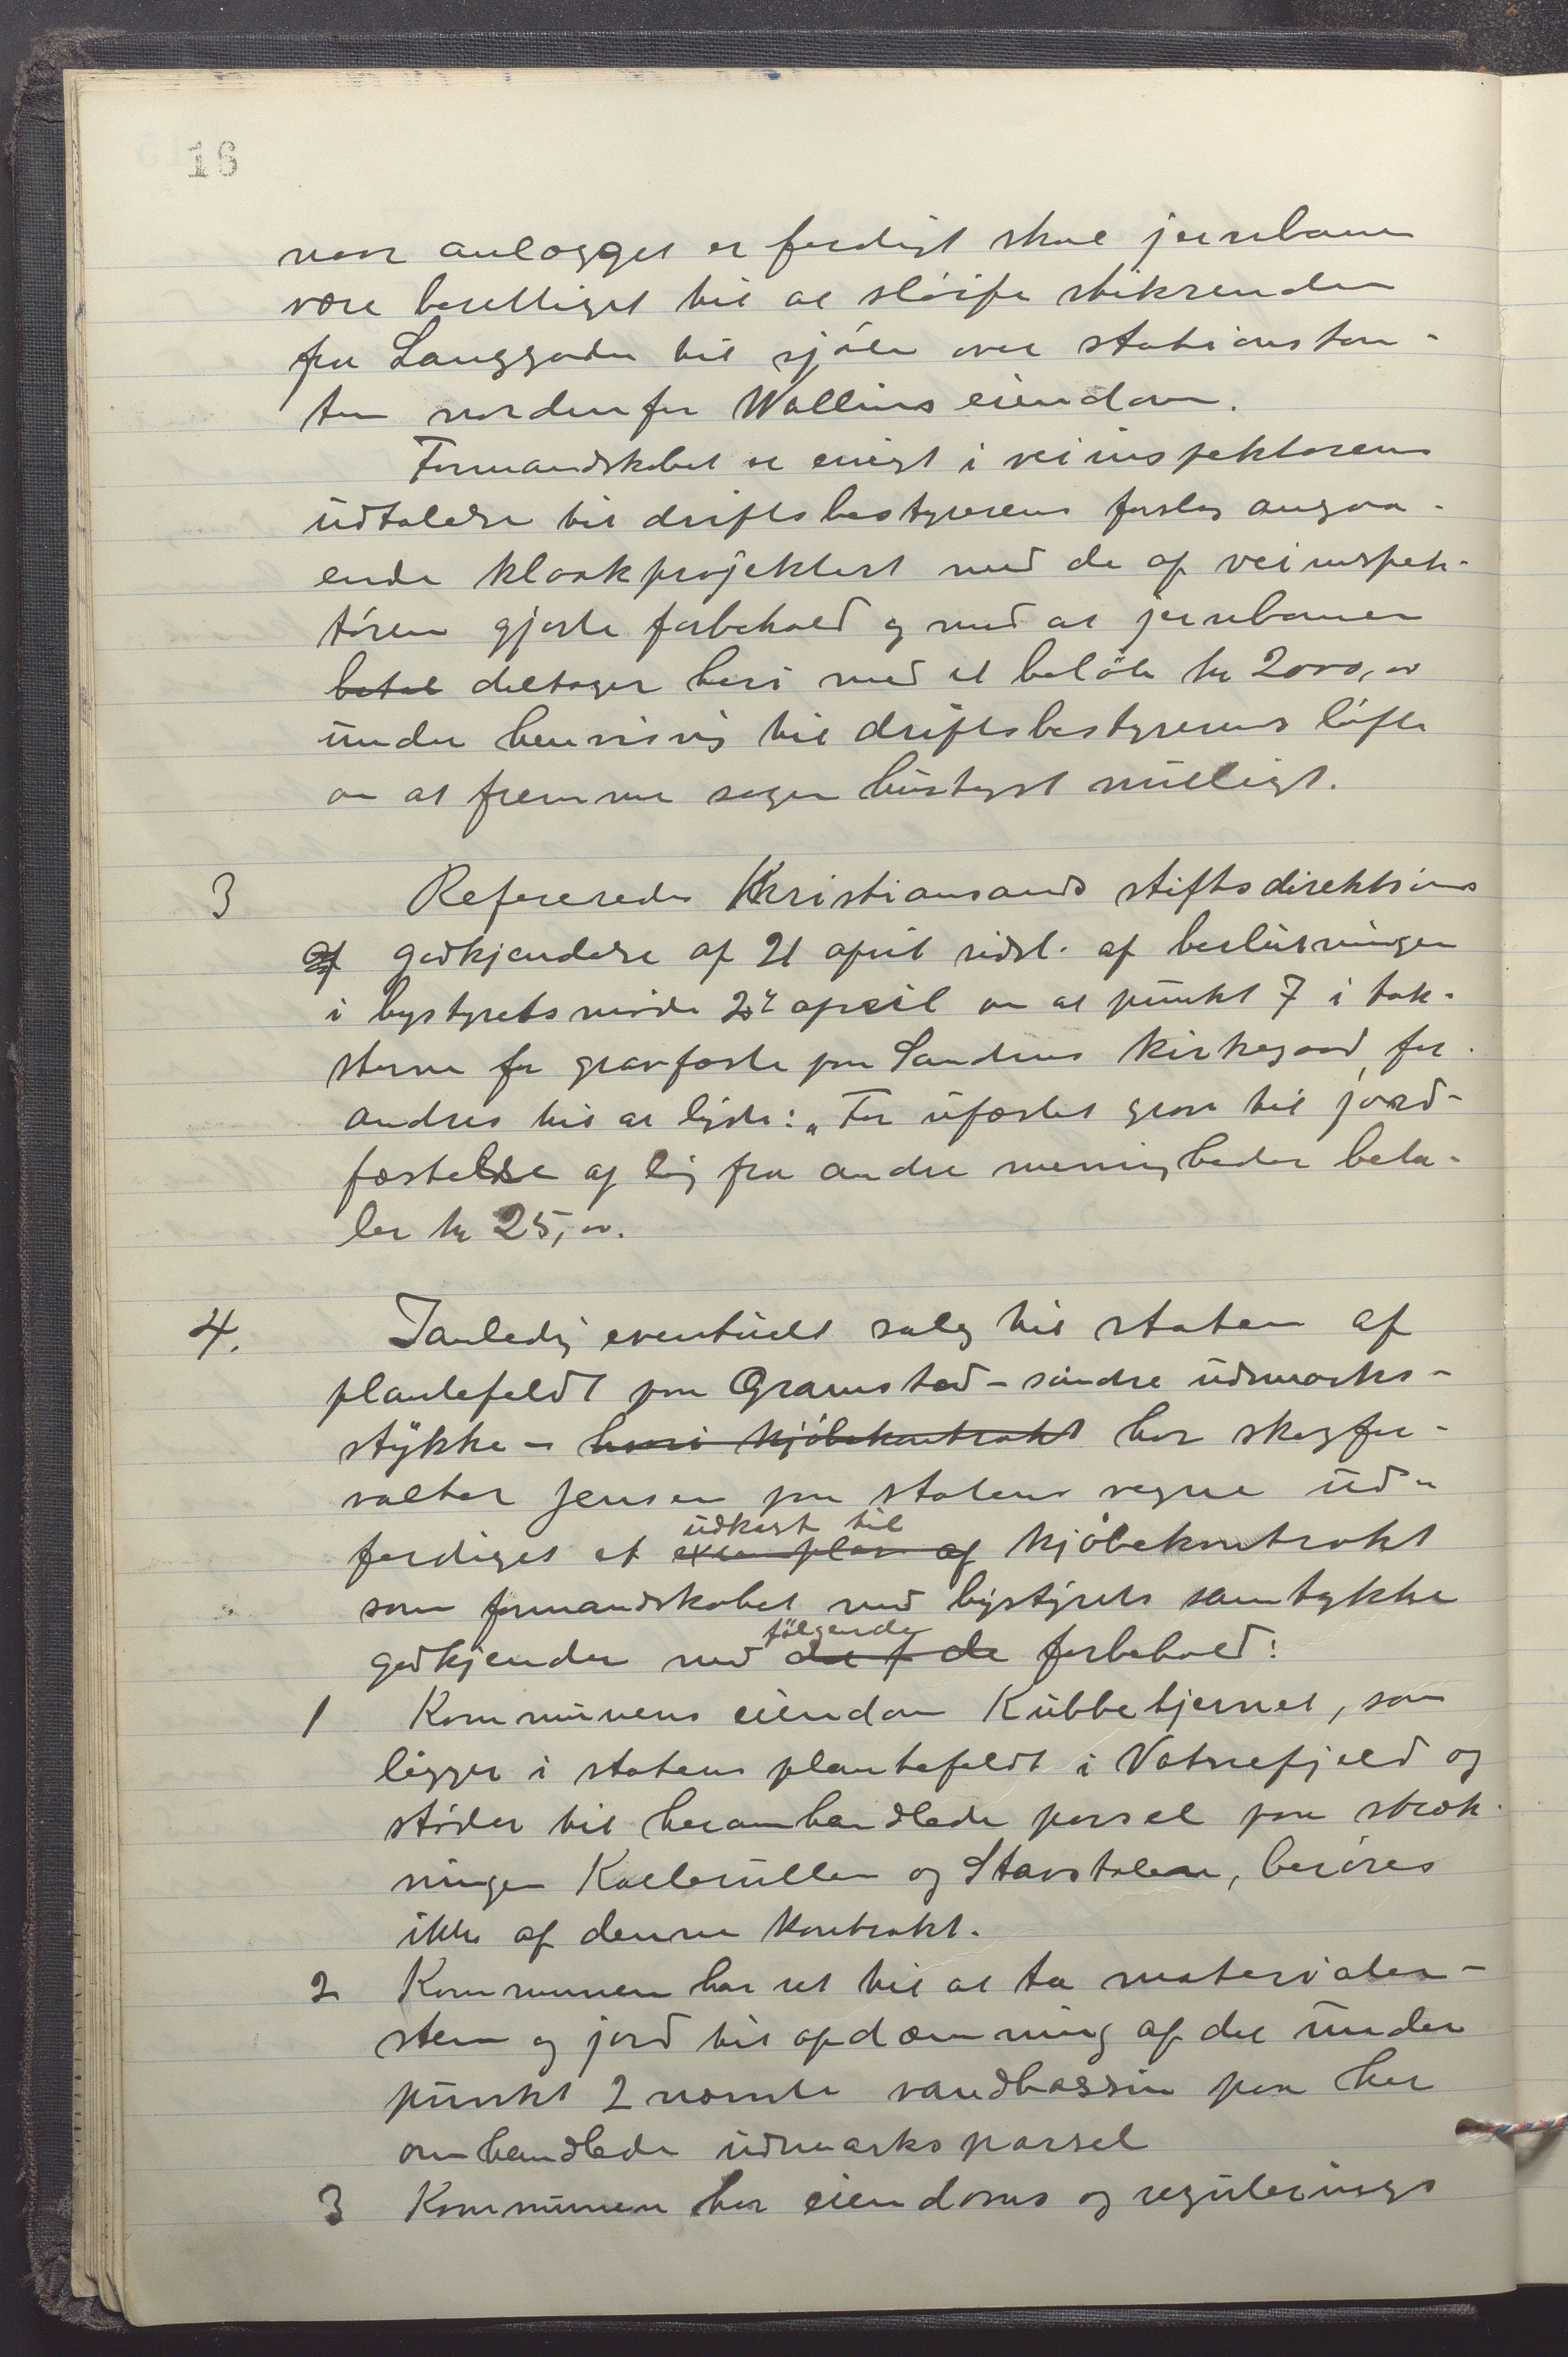 16
naar anlægget er ferdigt skal jernbanen
være berettiget til at sløife stikrenden
fra Langgaden til sjøen over stationstom-
ten nordenfor Wallins eiendom.
Formandskabet er enigt i veiinspektørens
udtalelse til driftsbestyrerens forslag angaa-
ende kloakprojektert med de af veiinspek-
tøren gjorte forbehold og med at jernbanen
betal deltager heri med et beløb kr 2000,00
under henvisning til driftsbestyrerens løfte
om at fremme sagen hurtigst muligt.
3 Refereredes Kristiansands stiftsdirektions
af godkjendelse af 21 april sidstl. af beslutningen
i bystyrets møde 2 april om at punkt 7 i tak-
sterne for gravfæste paa Sandnes kirkegaard for-
andres til at lyde: „For ufæstet grav til jord-
fæstelse af lig fra andre menigheder beta-
les kr 25,00.
4. I anledg eventuelt salg til staten af
plantefeldt paa Gramstad - søndre udmarks-
stykke - hvori kjøbekontrakt har skogfor-
valter Jensen paa statens vegne ud-
udkast til
ferdiget et exemplar af kjøbekontrakt
som formandskabet med bystyrets samtykke
følgende
godkjender med de f de forbehold:
1 Kommunens eiendom Kubbetjernet, som
ligger i statens plantefeldt i Vatnefjeld og
støder til heromhandlede parsel paa stræk-
ningen Kallerullen og Stavstolen, berøres
ikke af denne kontrakt.
2 Kommunen har ret til at ta materialer -
sten og jord til opdæmning af det under
punkt 2 nævnte vandbassin paa her
omhandlede udmarksparsel
3 Kommunen har eiendoms og regulerings